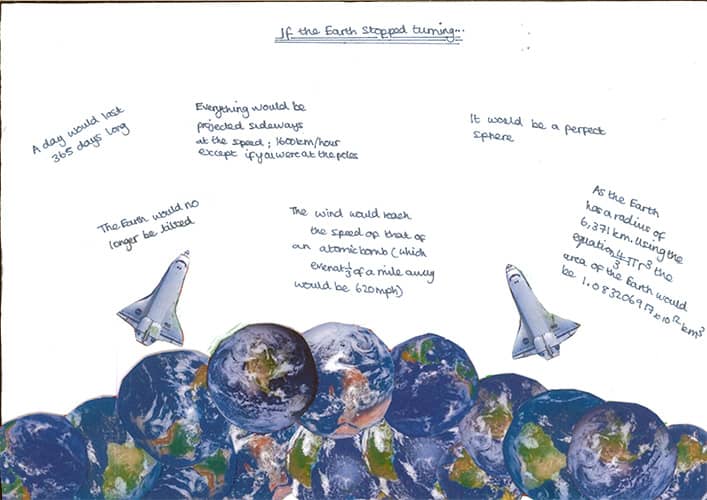 If the Earth stopped turning...
A day would last
365 days long
Everything would be
projected sideways
at the speed; 1600km/hour
except if you were at the poles
It would be a perfect
sphere
The Earth would no
longer be tilted
The wind would reach
the speed of that of
an atomic bomb (which
even at ⅓ of a mile away
would be 620mph)
As the Earth
has a radius of
6,371km. Using the
equation 4/3 πr³ the
area of the Earth would
be 1.083206917x10¹²km³